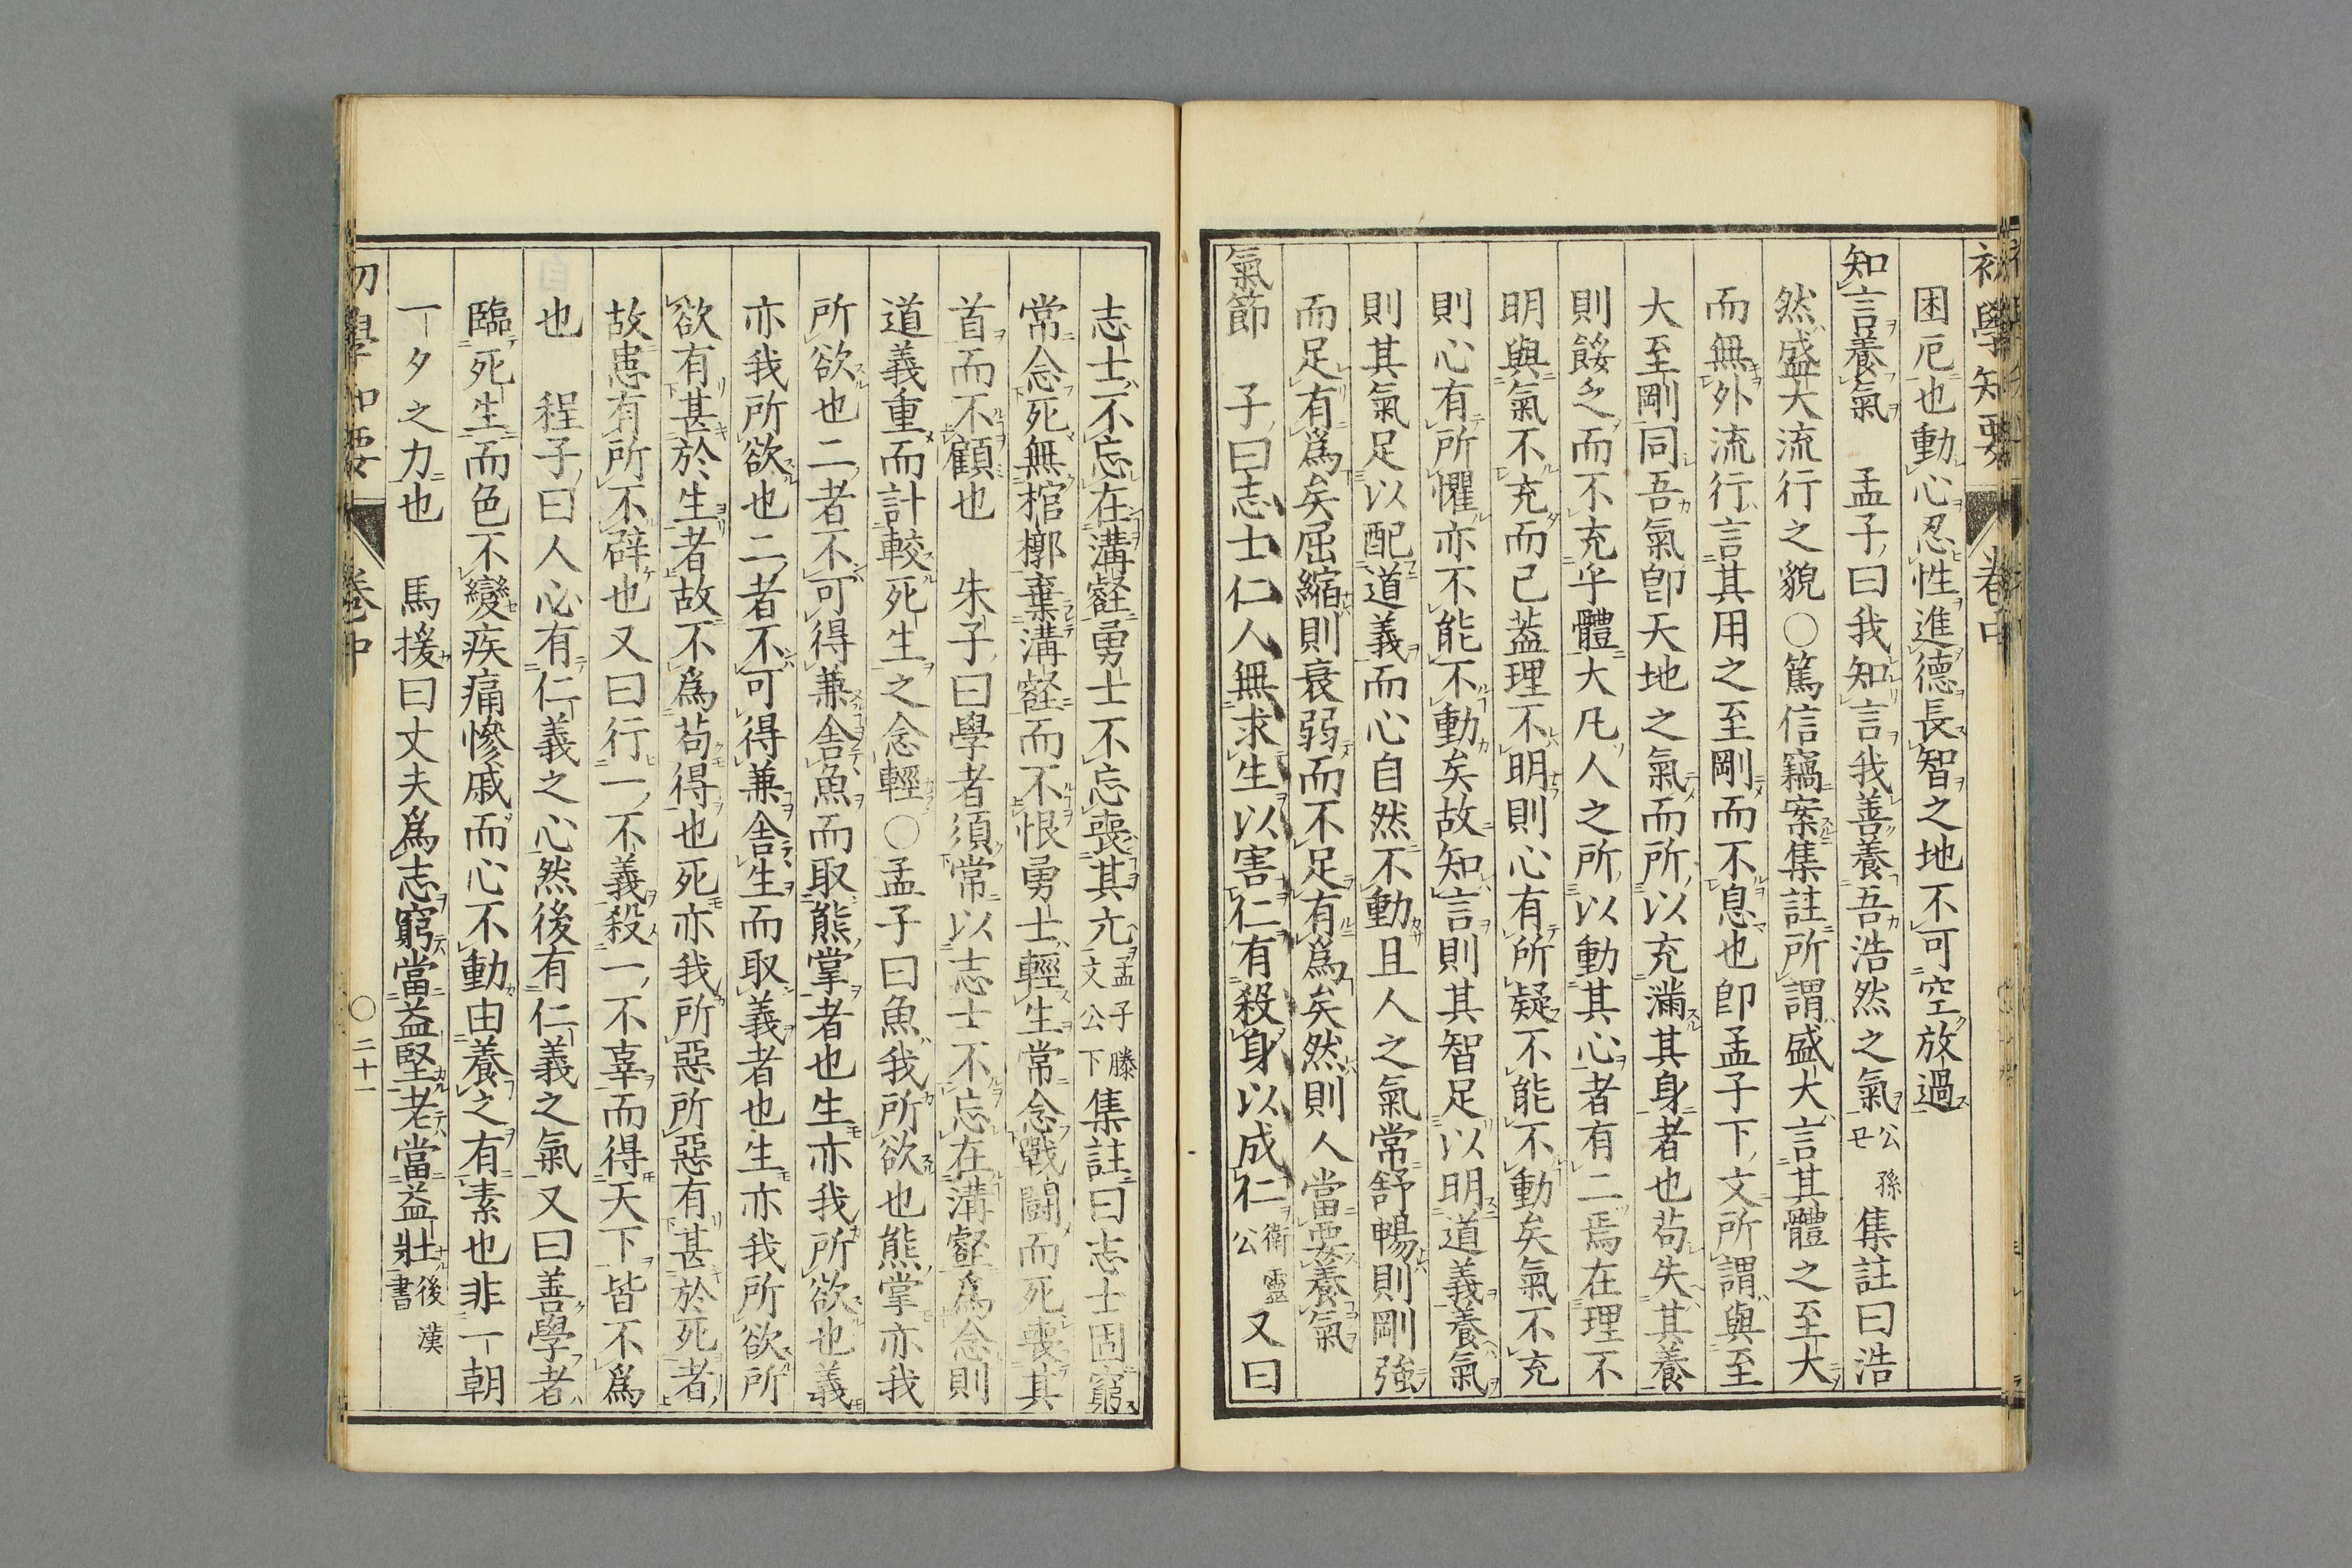 初學知要 卷中
困厄也動心忍性進德長智之地不可空放過
知言養氣 孟子曰我知言我善養吾浩然之氣公孫丑集註曰浩
然盛大流行之貌○篤信竊案集註所謂盛大言其體之至大
而無外流行言其用之至剛而不息也卽孟子下文所謂與至
大至剛同吾氣卽天地之氣而所以充滿其身者也苟失其養
則餒乏而不充乎體大凡人之所以動其心者有二焉在理不
明與氣不充而已蓋理不明則心有所疑不能不動矣氣不充
則心有所懼亦不能不動矣故知言則其智足以明道義養氣
則其氣足以配道義而心自然不動且人之氣常舒暢則剛強
而足有爲矣屈縮則衰弱而不足有爲矣然則人當要養氣
氣節 子曰志士仁人無求生以害仁有殺身以成仁衛靈公又曰
志士不忘在溝壑勇士不忘喪其元孟子滕文公下集註曰志士固窮
常念死無棺槨棄溝壑而不恨勇士輕生常念戰鬪而死喪其
首而不顧也 朱子曰學者須常以志士不忘在溝壑爲念則
道義重而計較死生之念輕○孟子曰魚我所欲也熊掌亦我
所欲也二者不可得兼舍魚而取熊掌者也生亦我所欲也義
亦我所欲也二者不可得兼舍生而取義者也生亦我所欲所
欲有甚於生者故不爲苟得也死亦我所惡所惡有甚於死者
故患有所不辟也又曰行一不義殺一不辜而得天下皆不爲
也 程子曰人必有仁義之心然後有仁義之氣又曰善學者
臨死生而色不變疾痛慘戚而心不動由養之有素也非一朝
一夕之力也 馬援曰丈夫爲志窮當益堅老當益壯後漢書
初學知要 卷中 ○二十一